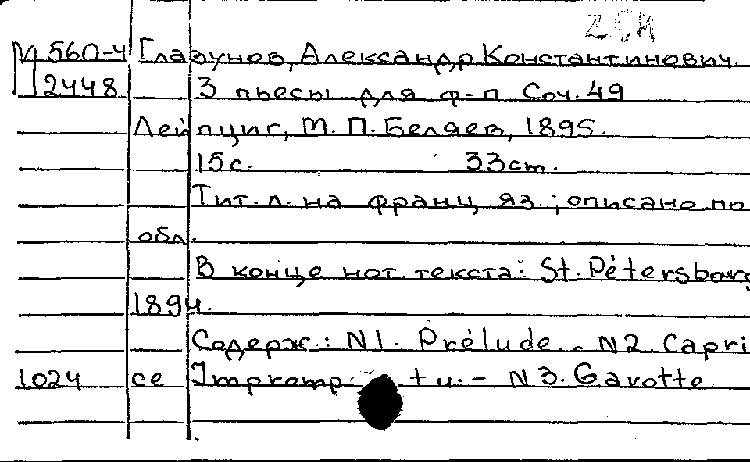 М 560-4 Глазунов, Александр Константинович.
2448 3 пьесы для ф-п Соч. 49
Лейпциг, М. П. Беляев, 1895.
15 с. 33 cm.
Тит. л. на франц яз ; описано по
обл.
В конце нот. текста: St. Pétersbourg
1894.
Содерж.: N1. Prélude. - N2. Capri
1024 ce Impromptu. - N3. Gavotte